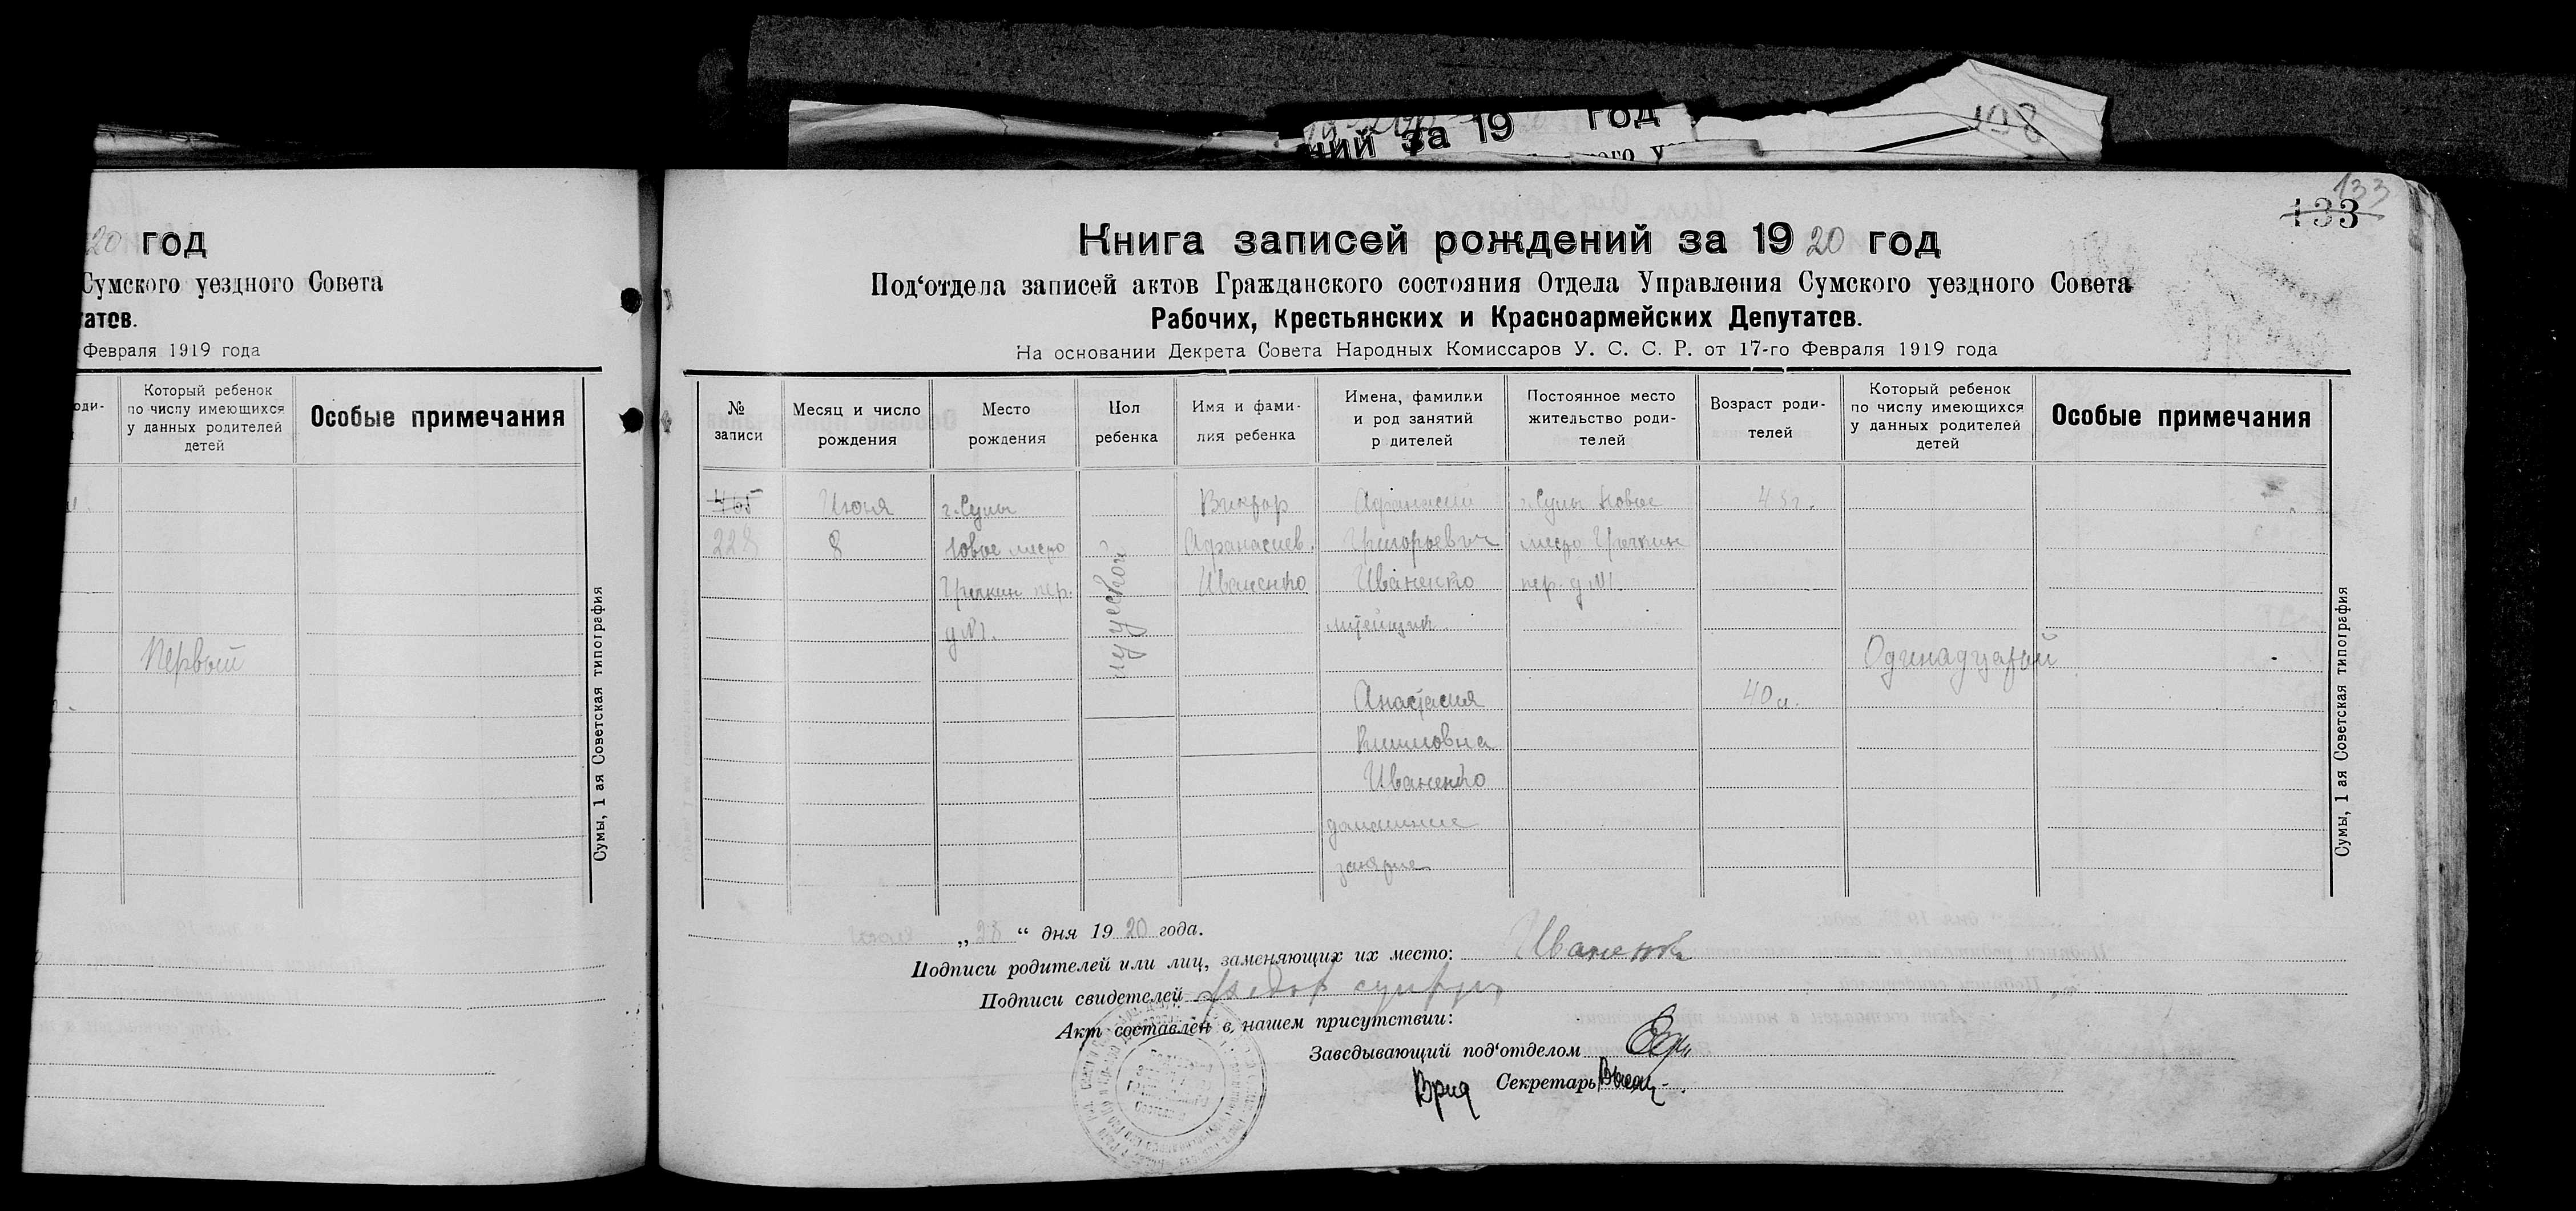 198
ний за 19 год
ого у
20 год
Сумского уездного Совета
татов.
Февраля 1919 года
оди-
Который ребенок
по числу имеющихся
у данных родителей
детей
Особые примечания
Первый
Сумы, 1 ая Советская типография
133
133
Книга записей рождений за 1920 год
Под‘отдела записей актов Гражданского состояния Отдела Управления Сумского уездного Совета
Рабочих, Крестьянских и Красноармейских Депутатов.
На основании Декрета Совета Народных Комиссаров У. С. С. Р. от 17-го Февраля 1919 года
№
записи
Месяц и число
рождения
Место
рождения
Пол
ребенка
Имя и фами-
лия ребенка
Имена, фамилии
и род занятий
р дителей
Постоянное место
жительство роди-
телей
Возраст роди-
телей
Который ребенок
по числу имеющихся
у данных родителей
детей
Особые примечания
465
228
Июня
8
г. Сумы
Новое место
пер.
д №1.
мужской
Виктор
Афанасиев.
Иваненко
Афанасий
Григорьевич
Иваненко
литейщик
Анастасия
Климовна
Иваненко
домашние
занятие
г. Сумы Новое
место
пер. д №1.
40 л.
Одинадцатый
Сумы, 1 ая Советская типография
„ 28 “ дня 1920 года.
Подписи родителей или лиц, заменяющих их место: Иваненко
Подписи свидетелей
Акт составлен в нашем присутствии:
Заведывающий под‘отделом
Врид Секретарь